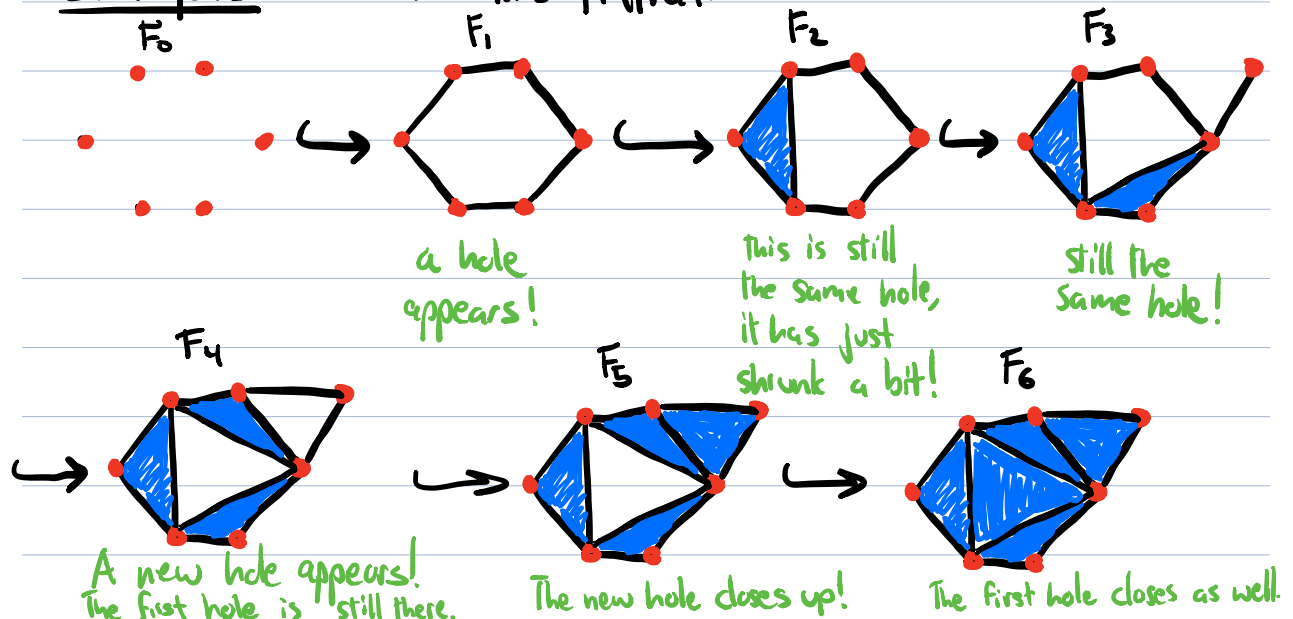 F₀
F₁
F₂
F₃
a hole
appears!
this is still
the same hole,
it has just
shrunk a bit!
still the
same hole!
F₄
F₅
F₆
A new hole appears!
The first hole is still there.
The new hole closes up!
The first hole closes as well.